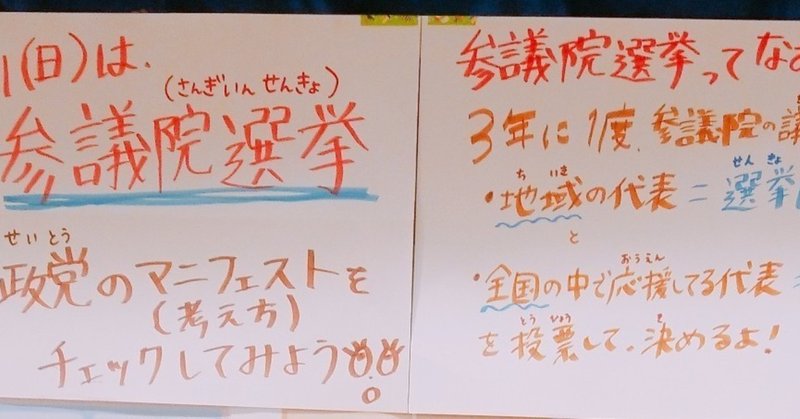 1(日)は、
(さんぎいん せんきょ)
参議院選挙
せいとう
政党のマニフェストを
(考え方)
チェックしてみよう!!
参議院選挙ってな
3年に1度、参議院の議
ちいき せんきょ
・地域の代表=選挙
と
おうえん
・全国の中で応援してる代表=
とうひょう き
を投票して、決めるよ!